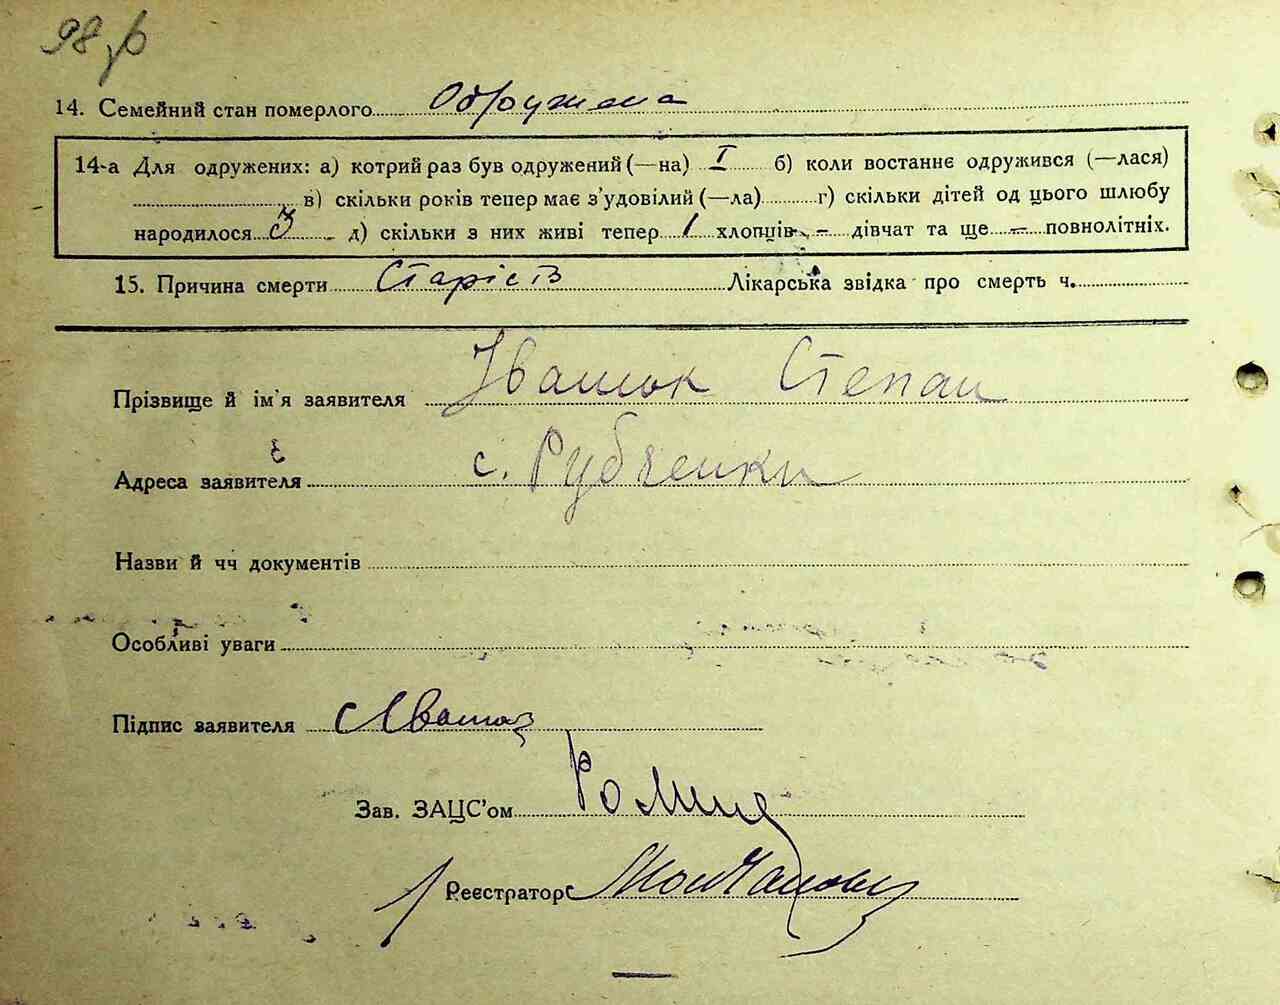 98
14. Семейний стан померлого Одружена
14-а Для одружених: а) котрий раз був одружений (—на) I б) коли востаннє одружився (—лася)
в) скільки років тепер має з'удовілий (—ла) г) скільки дітей од цього шлюбу
народилося 3 д) скільки з них живі тепер 1 хлопців - дівчат та ще - повнолітніх.
15. Причина смерти Старість Лікарська звідка про смерть ч.
Прізвище й ім'я заявителя Іващук Степан
Адреса заявителя с. Рубченки
Назви й чч документів
Особливі уваги
Підпис заявителя
Зав. ЗАЦС'ом
Реєстратор